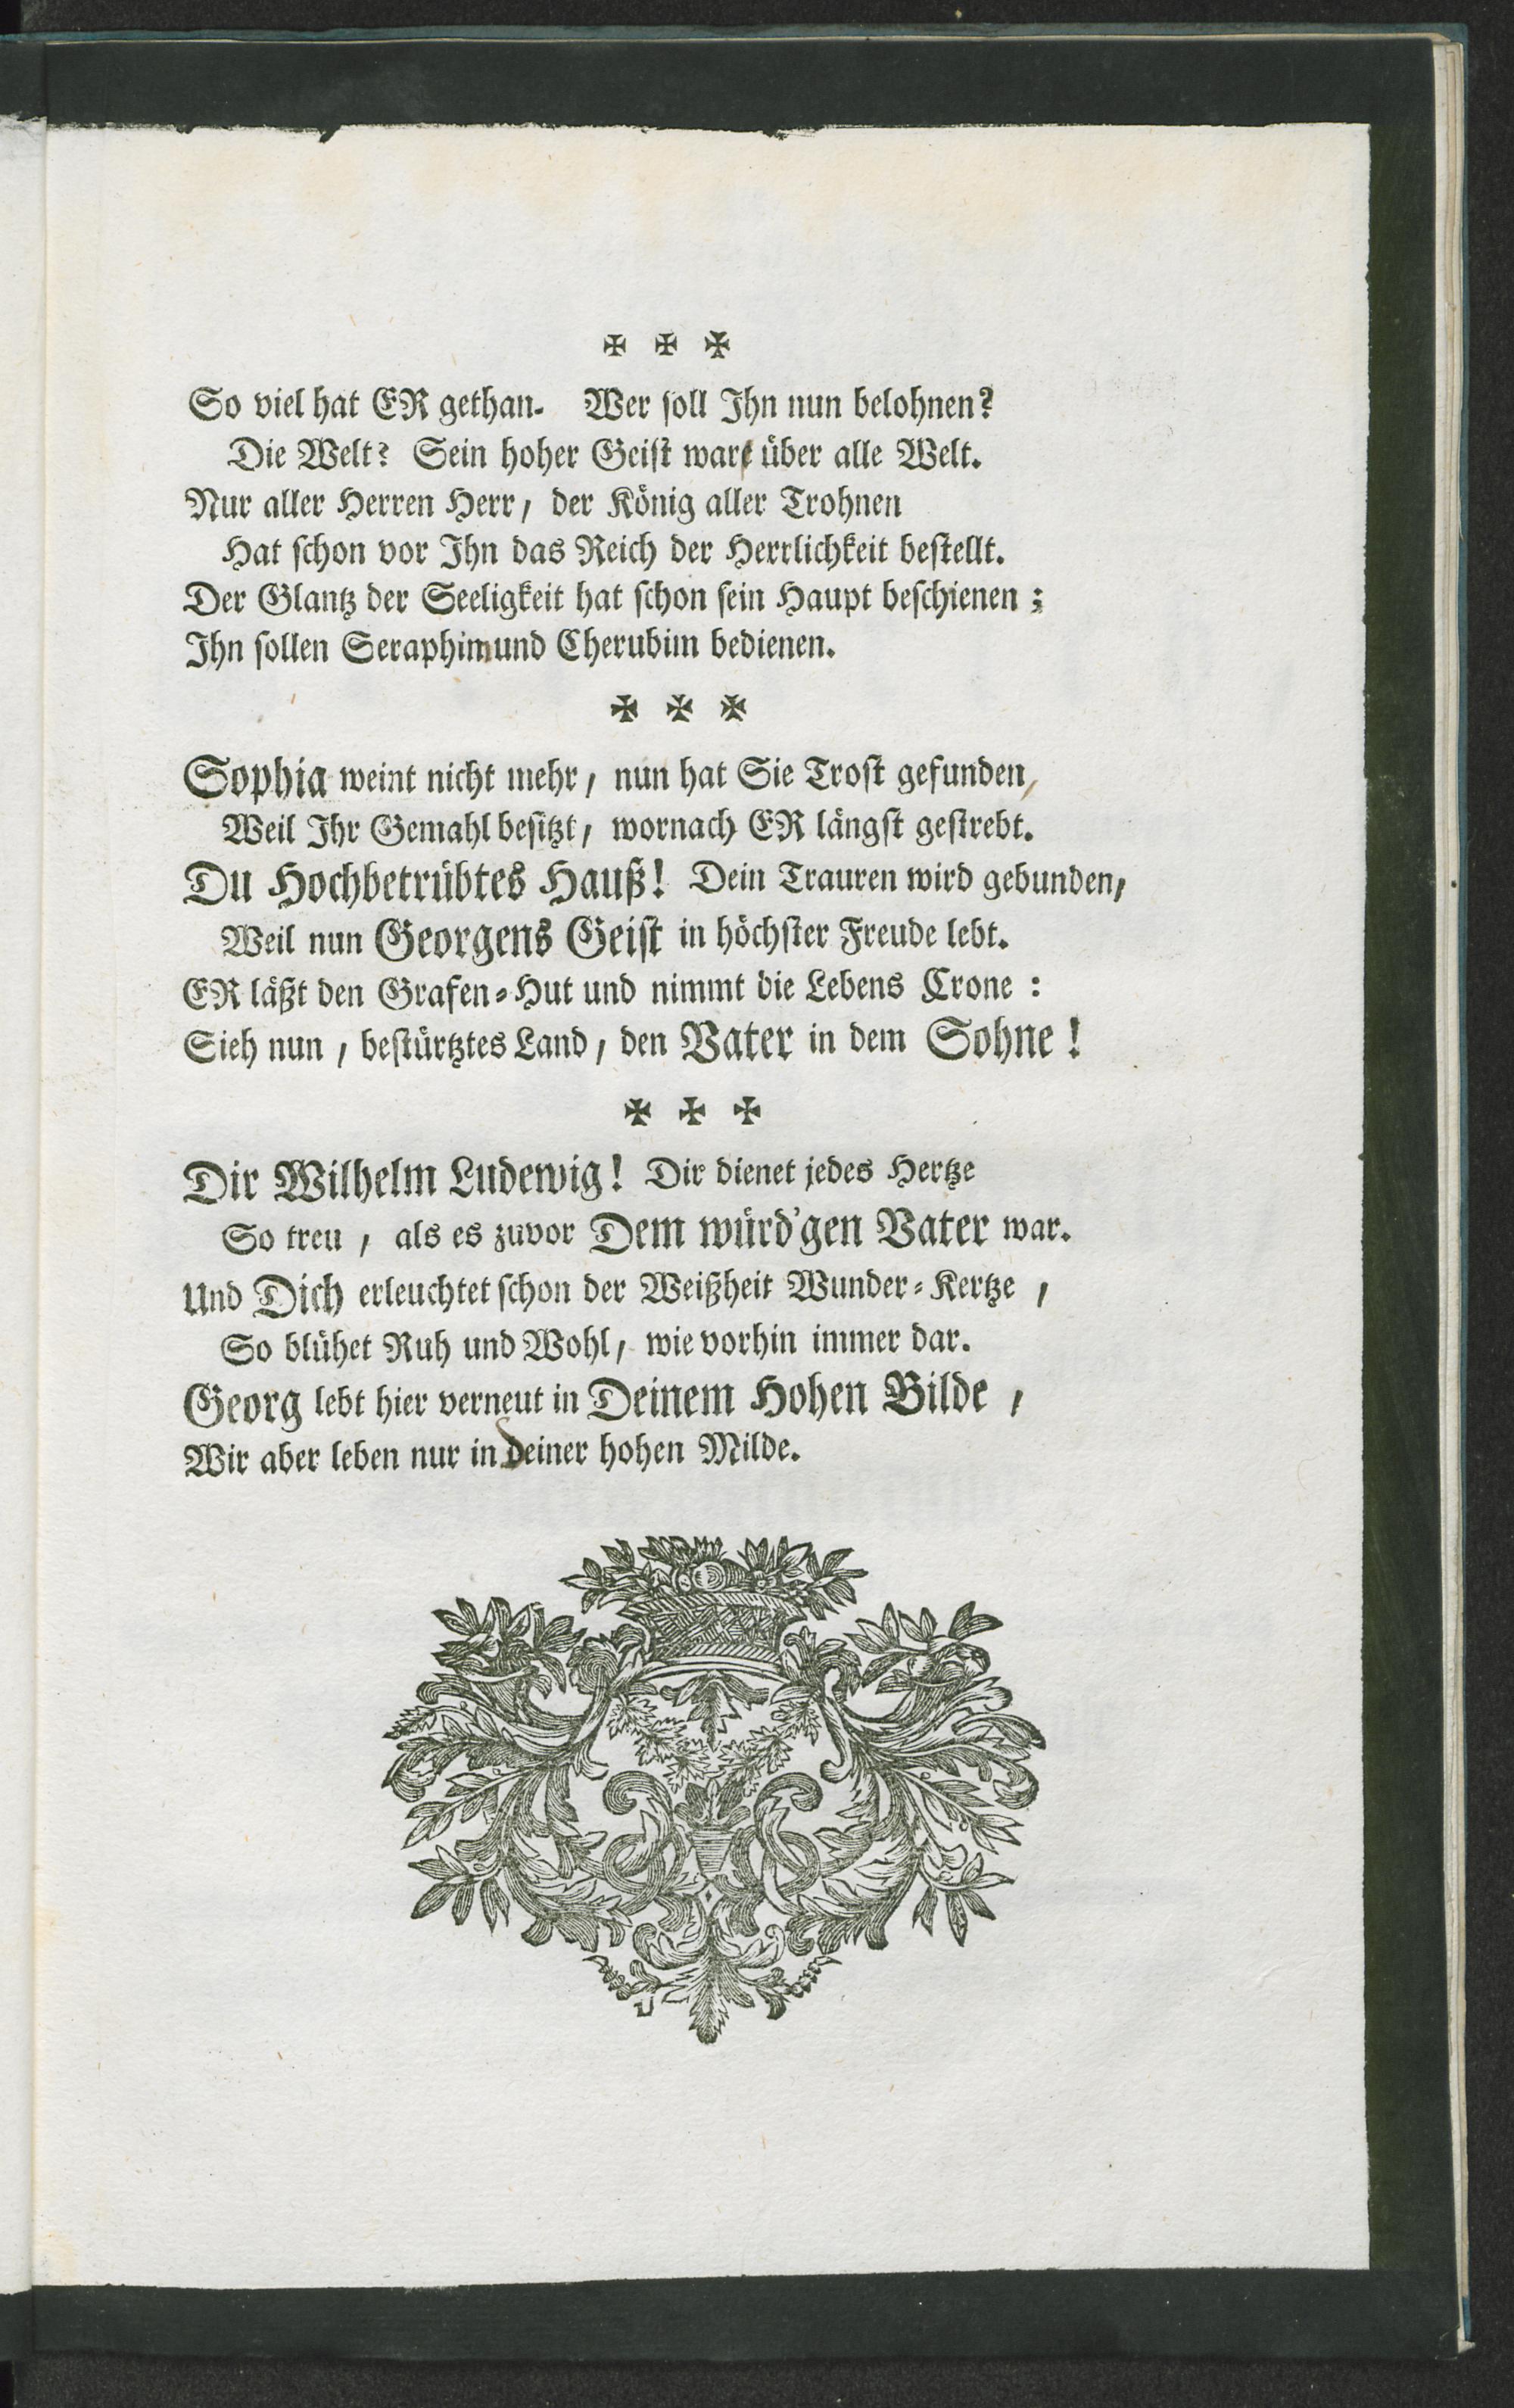 ✠ ✠ ✠
So viel hat ER gethan. Wer soll Ihn nun belohnen?
Die Welt? Sein hoher Geist war über alle Welt.
Nur aller Herren Herr, der König aller Trohnen
Hat schon vor Ihn das Reich der Herrlichkeit bestellt.
Der Glantz der Seeligkeit hat schon sein Haupt beschienen;
Ihn sollen Seraphim und Cherubim bedienen.
✠ ✠ ✠
Sophia weint nicht mehr, nun hat Sie Trost gefunden,
Weil Ihr Gemahl besitzt, wornach ER längst gestrebt.
Du Hochbetrübtes Hauß! Dein Trauren wird gebunden,
Weil nun Georgens Geist in höchster Freude lebt.
ER läßt den Grafen-Hut und nimmt die Lebens Crone:
Sieh nun, bestürtztes Land, den Vater in dem Sohne!
✠ ✠ ✠
Dir Wilhelm Ludewig! Dir dienet jedes Hertze
So treu, als es zuvor Dem würd'gen Vater war.
Und Dich erleuchtet schon der Weißheit Wunder-Kertze,
So blühet Ruh und Wohl, wie vorhin immer dar.
Georg lebt hier verneut in Deinem Hohen Bilde,
Wir aber leben nur in Deiner hohen Milde.